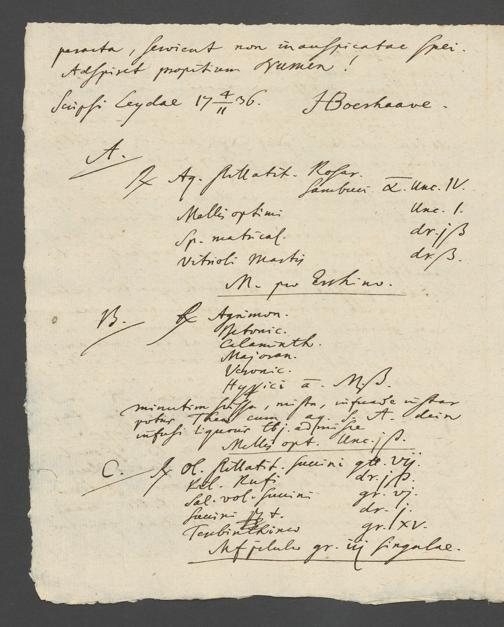 peracta, servient non inauspicatae spei.
Adspiret propitium Numen!
Scripsi Leydae 17 4/11 36. HBoerhaave.
A.
℞ Aq. stillatit. Rosar.
Sambuci ā. Unc. IV.
Mellis optimi Unc. I.
Sp. matrical. dr. jß
Vitrioli Martis dr. ß.
M. pro Erchino.
B. ℞ Agrimon.
Betonic.
Calaminth.
Majoran.
Veronic.
Hyssici ā. M. ß.
minutim scissa, mista, infunde instar
potus Thea cum aq. S. A. dein
infusi liquoris lbj. admisce
Mellis opt. Unc. jß.
C. ℞ Ol. stillatit. succini gtt. vij.
Rufi dr. jß.
Sal. vol. succini gr. vj.
Succini dr. j.
Terbinthinae gr. XV.
Mf pilulae gr. iij singulae.